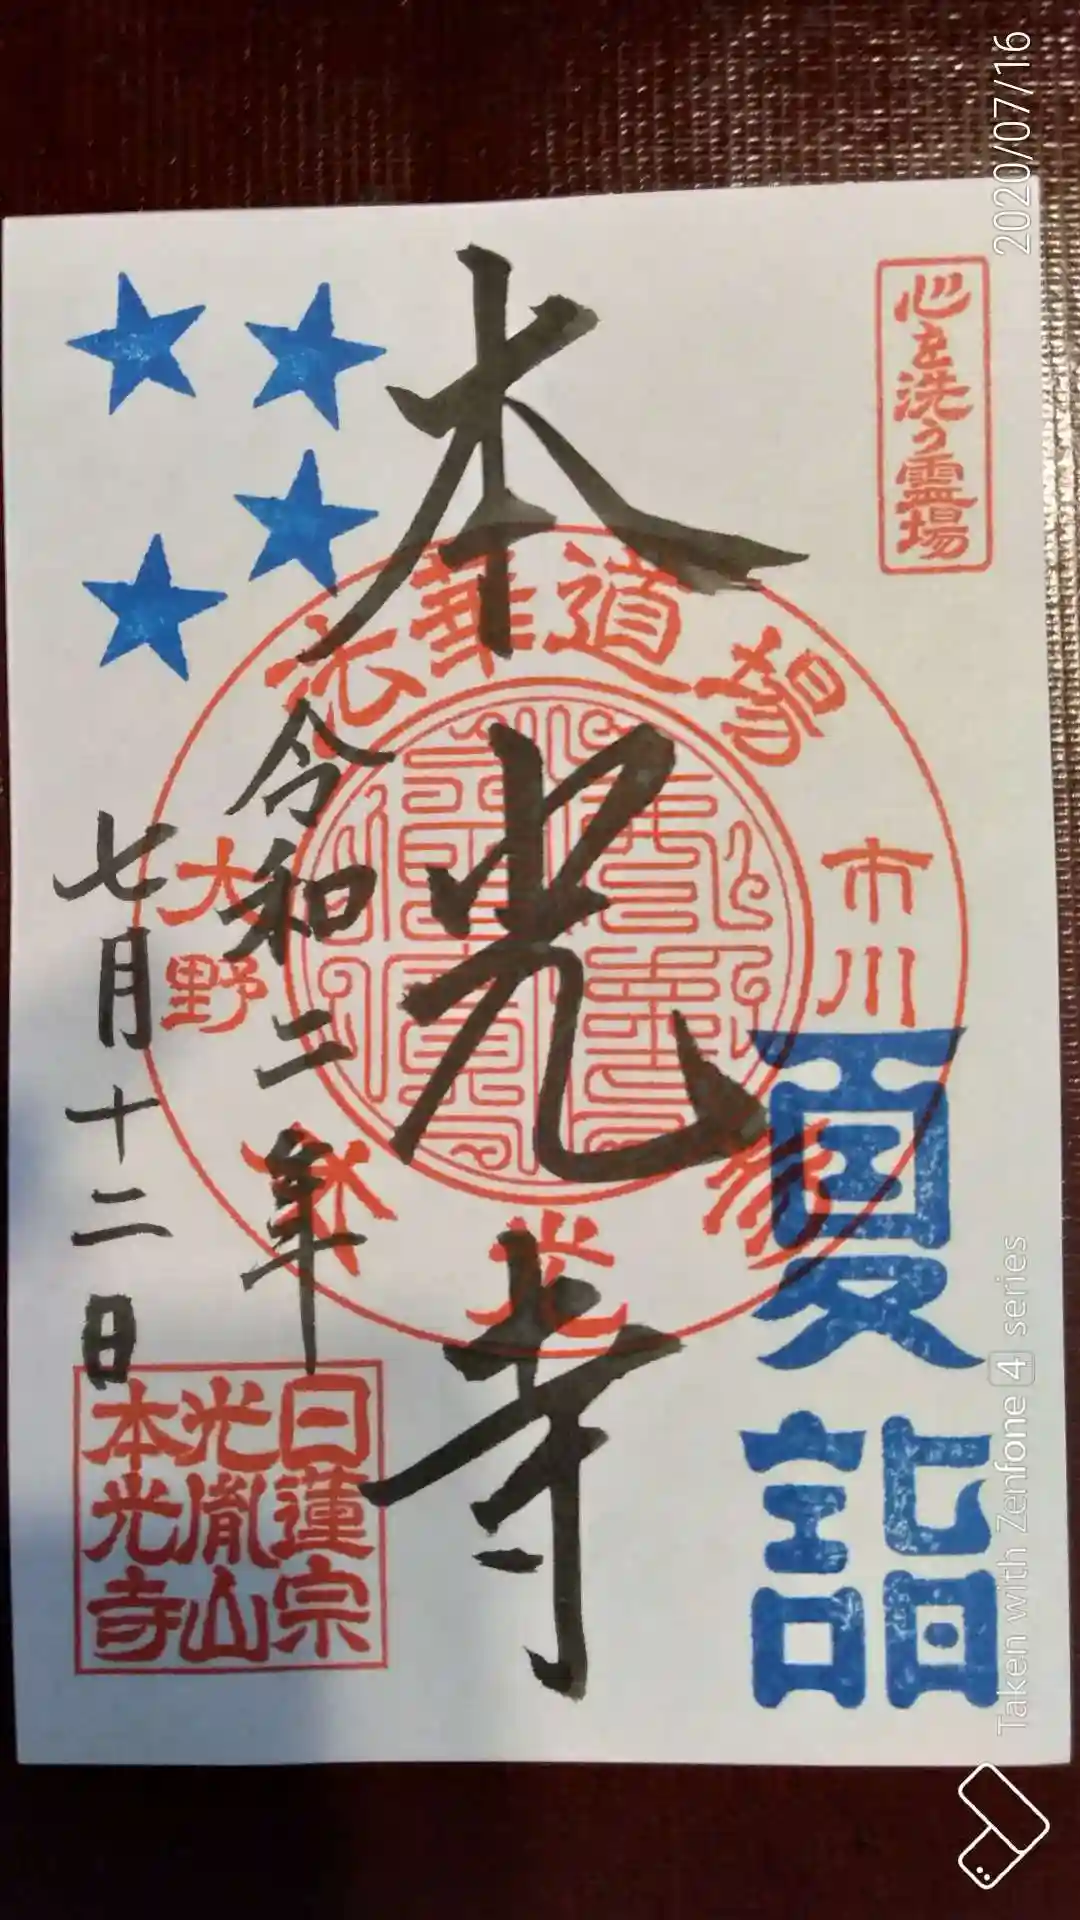 心を洗う霊場
夏詣
本光寺
法華道場
市川
大野
令和二年
七月十二日
日蓮宗
光胤山
本光寺
2020/07/16
Taken with Zenfone 4 series